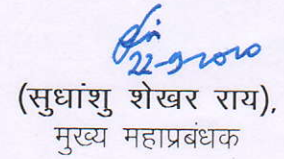 22-9-2020
(सुधांशु शेखर राय),
मुख्य महाप्रबंधक